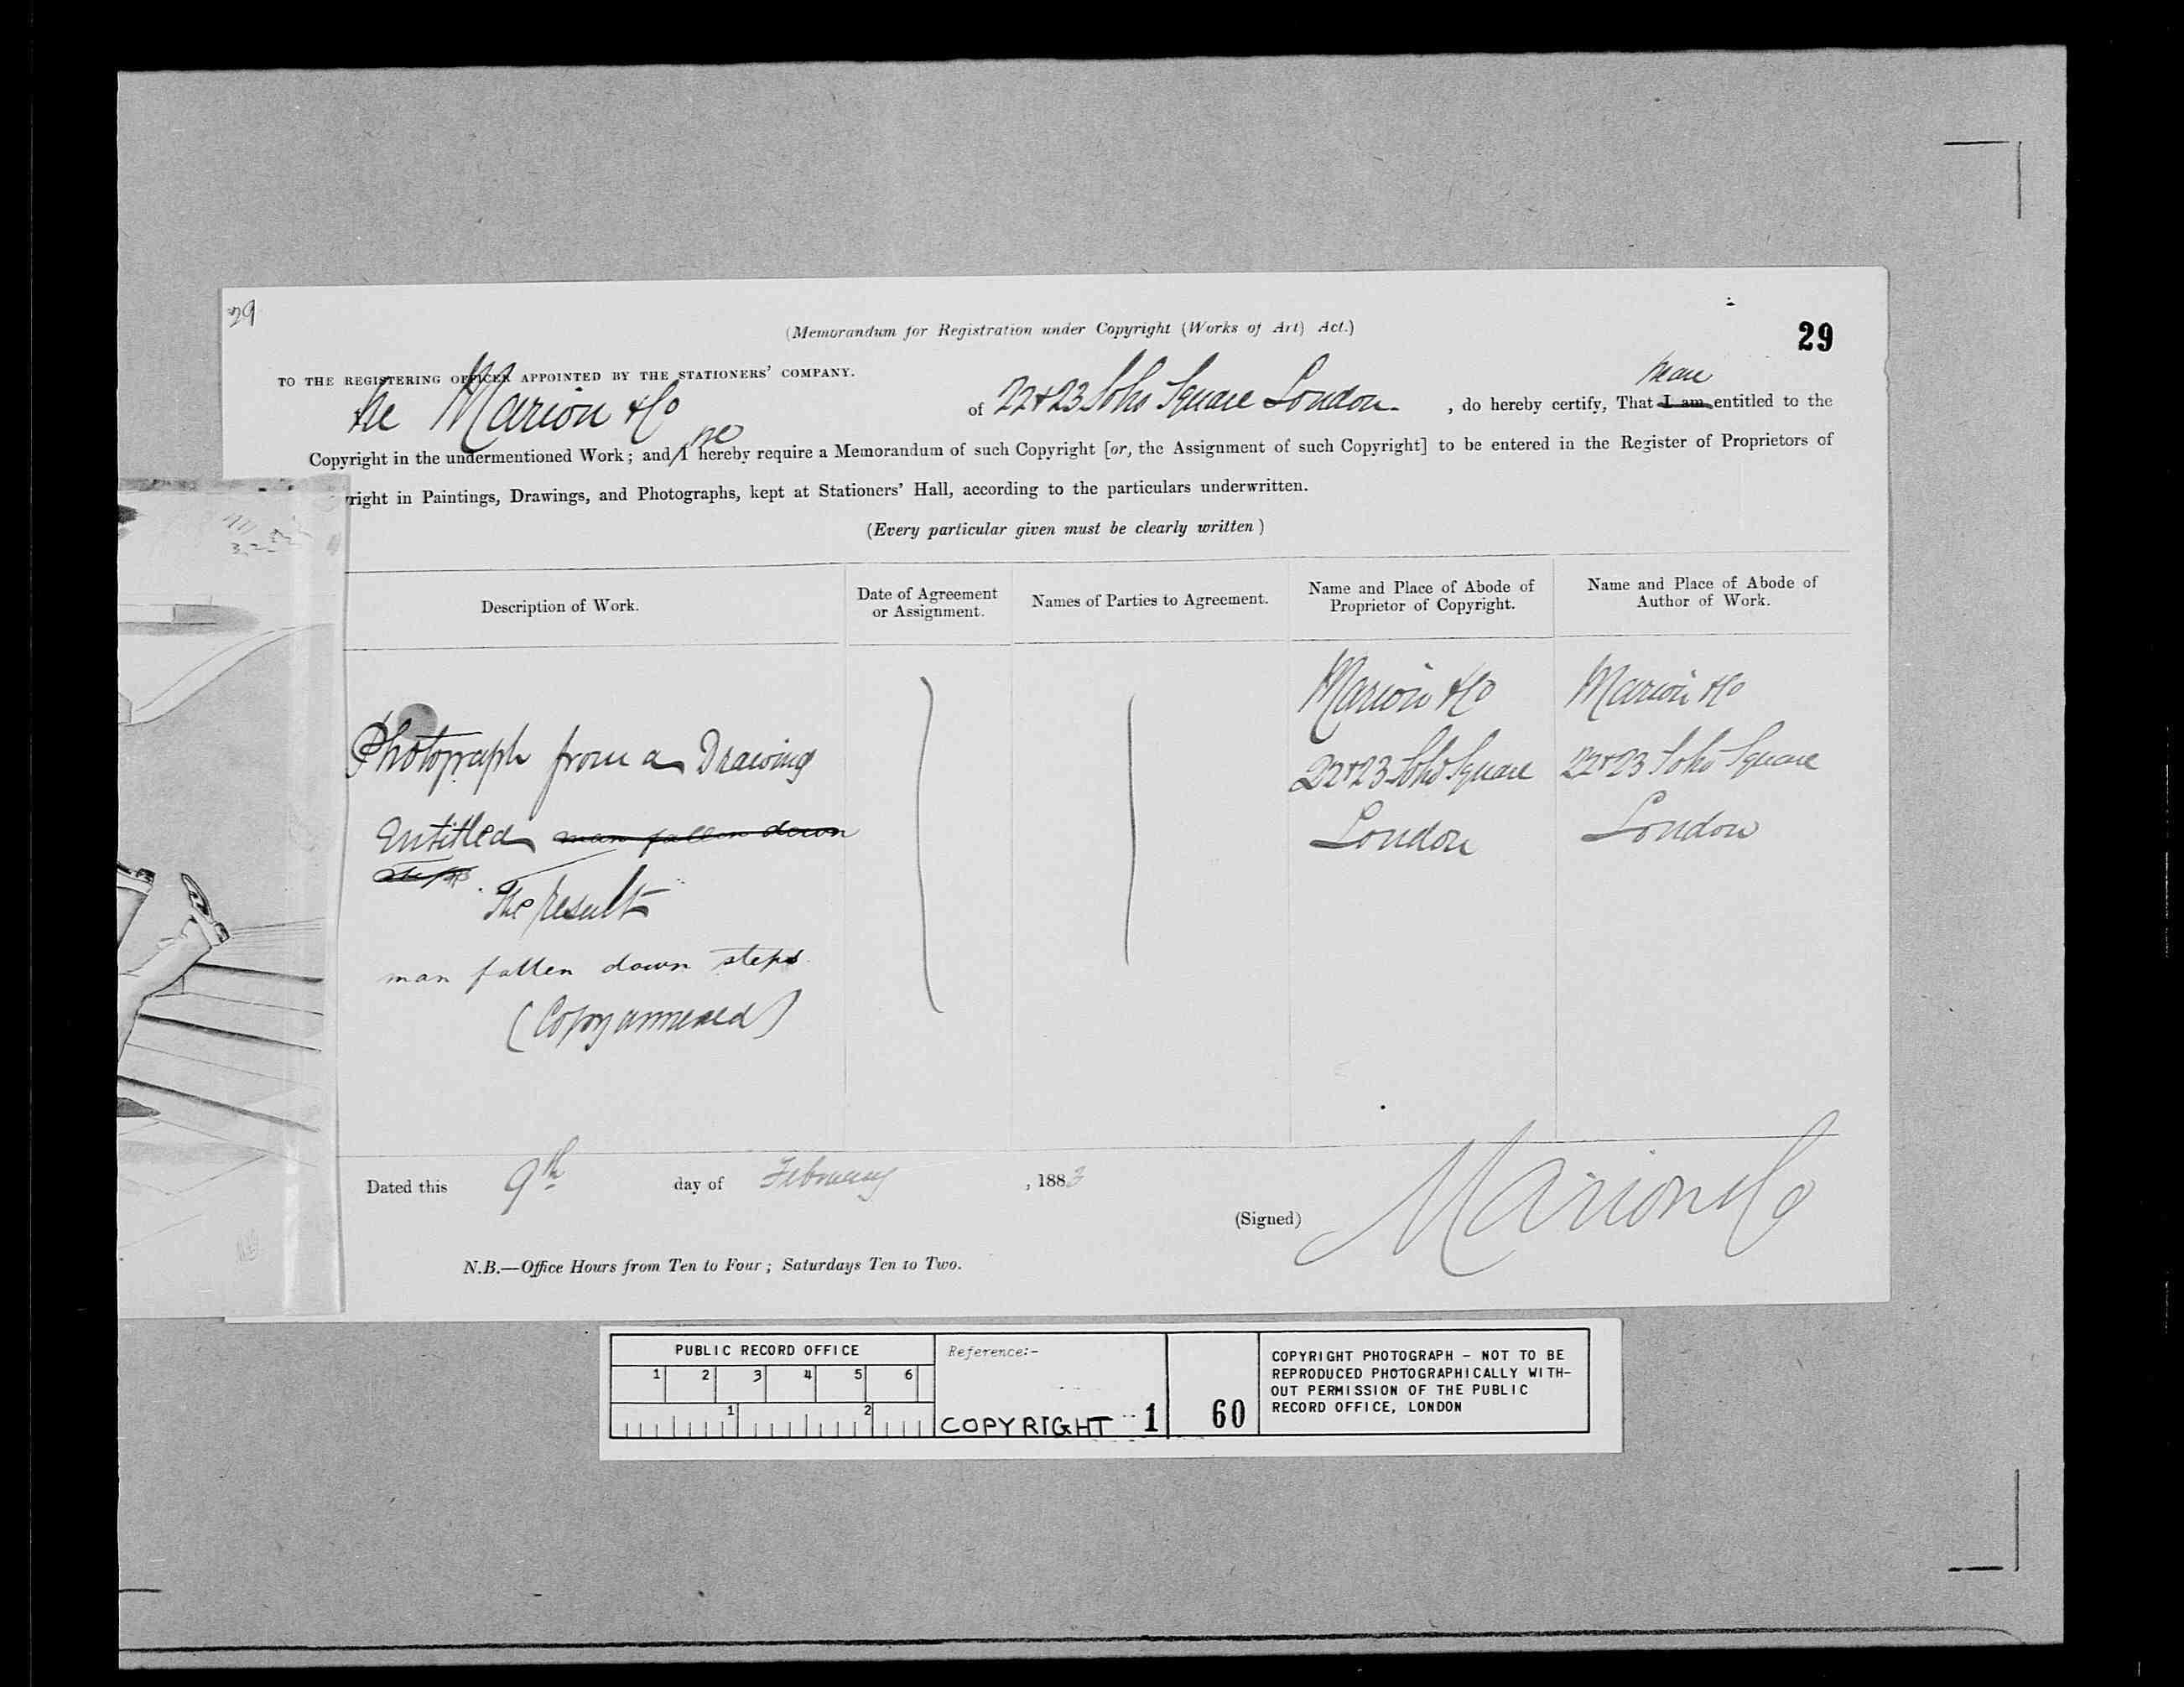 29
29
(Memorandum for Registration under Copyright (Works of Art) Act.)
TO THE REGISTERING OFFICER APPOINTED BY THE STATIONERS' COMPANY.
We Marion & Co of 22 & 23 Soho Square London , do hereby certify, That I am we are entitled to the
Copyright in the undermentioned Work; and I we hereby require a Memorandum of such Copyright [or, the Assignment of such Copyright] to be entered in the Register of Proprietors of
right in Paintings, Drawings, and Photographs, kept at Stationers' Hall, according to the particulars underwritten.
(Every particular given must be clearly written)
Description of Work.
Date of Agreement
or Assignment.
Names of Parties to Agreement.
Name and Place of Abode of
Proprietor of Copyright.
Name and Place of Abode of
Author of Work.
Photograph from a Drawing
Entitled man fallen down
steps.
The result
man fallen down steps
(Copy annexed)
Marion & Co
22 & 23 Soho Square
London
Marion & Co
22 & 23 Soho Square
London
Dated this 9th day of February , 1883
(Signed) Marion & Co
N.B.—Office Hours from Ten to Four; Saturdays Ten to Two.
PUBLIC RECORD OFFICE
1 2 3 4 5 6
1 2
Reference:-
COPYRIGHT 1
60
COPYRIGHT PHOTOGRAPH - NOT TO BE
REPRODUCED PHOTOGRAPHICALLY WITH-
OUT PERMISSION OF THE PUBLIC
RECORD OFFICE, LONDON